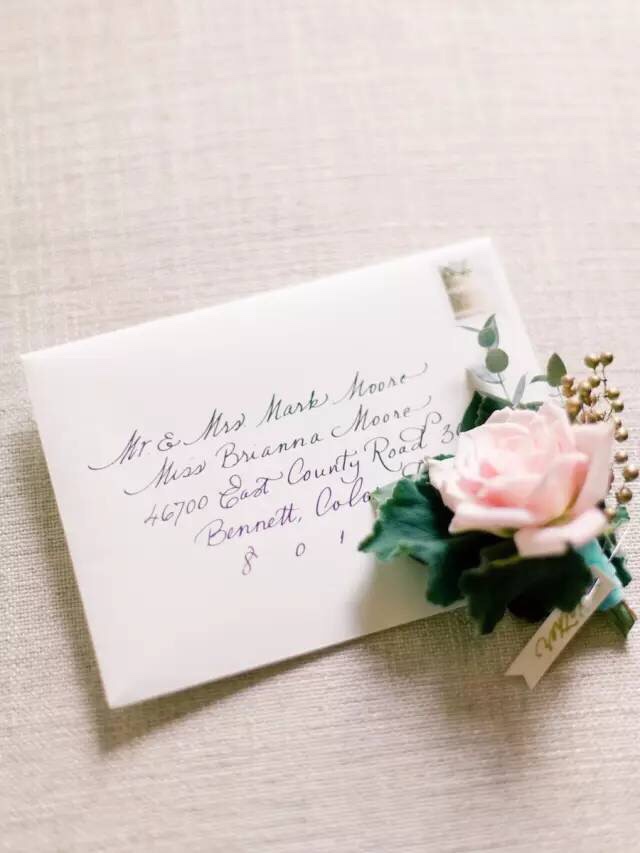 Mr. & Mrs Mark Moore
Miss Brianna Moore
46700 East County Road
Bennett,
8 0 1